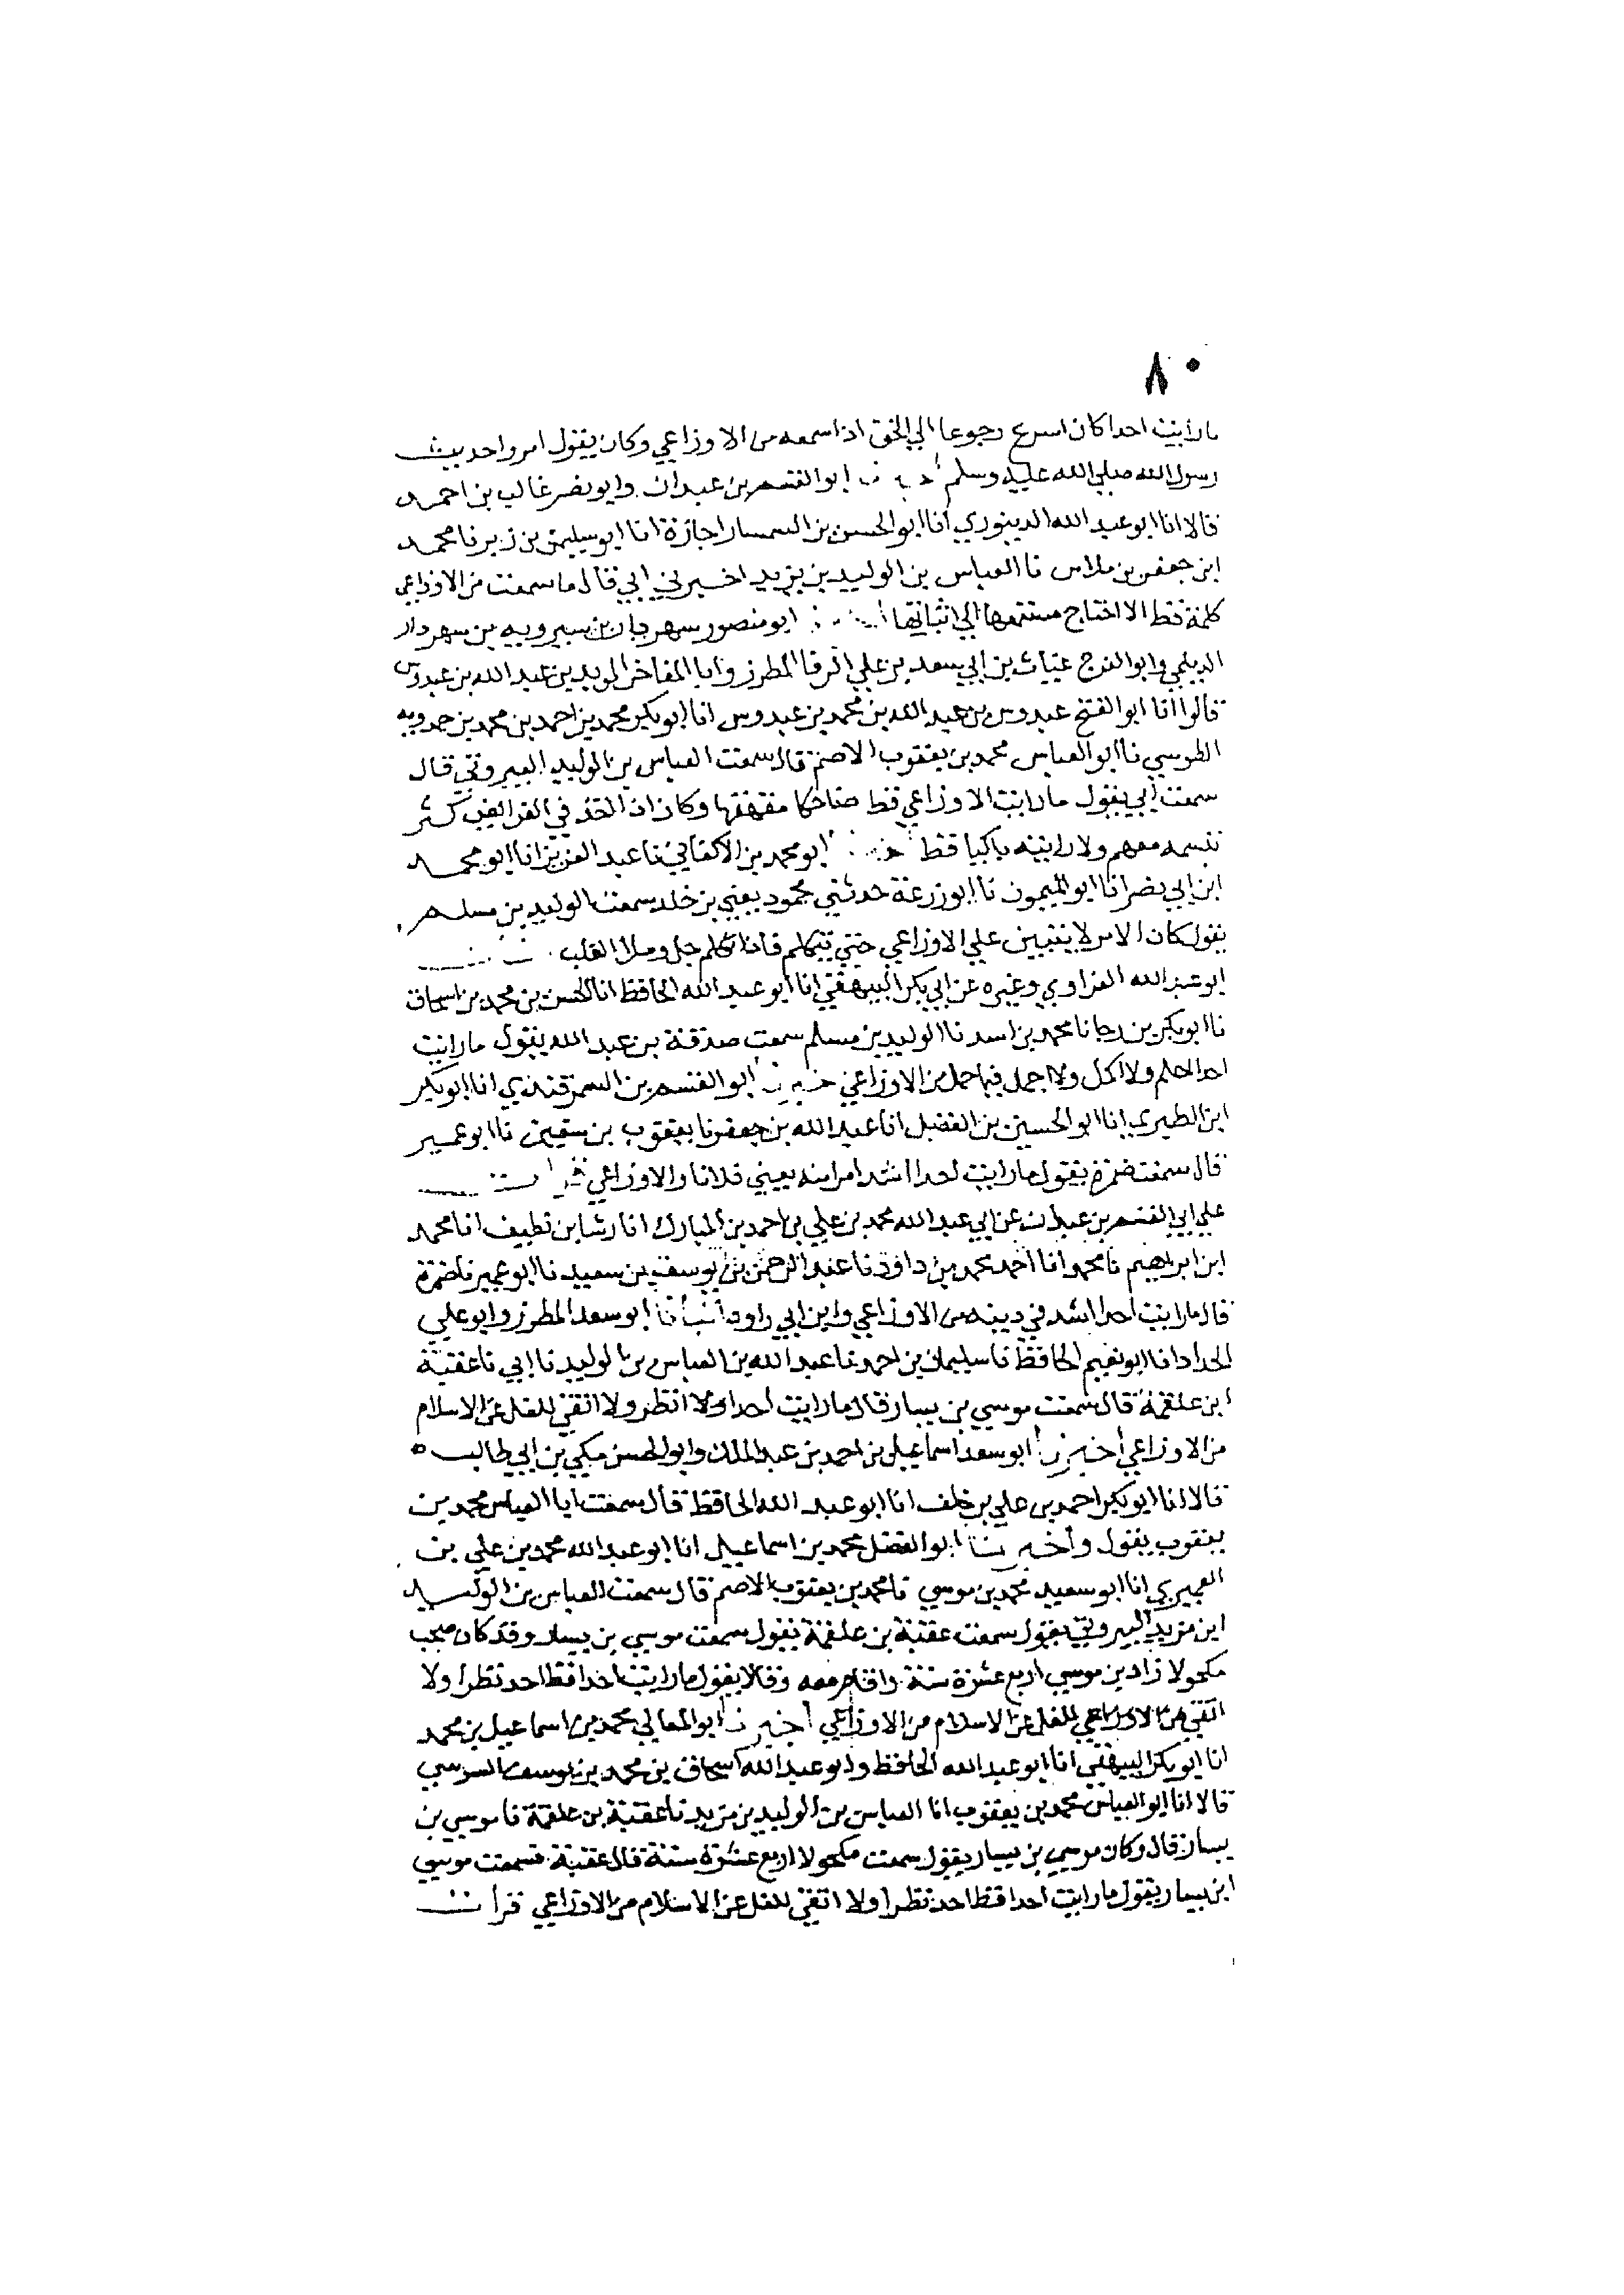 ٨٠
ما رايت احدا كان اسرع رجوعا الي الحق اذا سمعه من الاوزاعي وكان يقول امروا حديث
رسول الله صلي الله عليه وسلم ابو القسم بن عبدان وابو نصر غالب بن احمد
قالا انا ابو عبد الله الدينوري انا ابو الحسن بن السمسار اجازة انا ابو سليمن بن زبر نا محمد
ابن جعفر بن ملاس نا العباس بن الوليد بن يزيد اخبرني ابي قال ما سمعت من الاوزاعي
كلمة قط الا احتاج مستمعها الي اثباتها ابو منصور سهردار بن سيرويه بن سهردار
الديلمي وابو الفرج غياث بن ابي سعد بن علي المطرز وابا المفاخر المويد بن عبد الله بن عبدوس
قالوا انا ابو الفتح عبدوس بن عبد الله بن محمد بن عبدوس انا ابو بكر محمد بن احمد بن محمد بن حمدويه
الطوسي نا ابو العباس محمد بن يعقوب الاصم قال سمعت العباس بن الوليد البيروتي قال
سمعت ابي يقول ما رايت الاوزاعي قط ضاحكا مقهقها وكان اذا اخذ في كثر
تبسمه معهم ولا رايته باكيا قط ابو محمد بن الاكفاني نا عبد العزيز انا ابو محمد
ابن ابي نصر انا ابو الميمون نا ابو زرعة حدثني محمود يعني بن خلد سمعت الوليد بن مسلم
يقول كان الامر لا يتبين علي الاوزاعي حتي يتكلم فاذا تكلم جل وملا القلب
ابو عبد الله الفراوي وغيره عن ابي بكر البيهقي انا ابو عبد الله الحافظ انا الحسن بن محمد بن اسحاق
نا ابو بكر بن رجا نا محمد بن اسد نا الوليد بن مسلم سمعت صدقة بن عبد الله يقول ما رايت
احدا احلم ولا اكمل ولا اجمل فيما حمل من الاوزاعي ابو القسم بن السمرقندي انا ابو بكر
ابن الطبري انا ابو الحسين بن الفضل انا عبد الله بن جعفر نا يعقوب بن سفين نا ابو عمير
قال سمعت ضمرة يقول ما رايت احدا اشد امرا منه يعني فلانا والاوزاعي قرات
علي ابي القسم بن عبدان عن ابي عبد الله محمد بن علي بن احمد بن المبارك انا رشا بن نظيف انا محمد
ابن ابراهيم نا محمد انا احمد محمد بن داود نا عبد الرحمن بن يوسف بن سعيد نا ابو عمير نا ضمرة
قال ما رايت احدا اشد في دينه من الاوزاعي وابن ابي رواد انبأنا ابو سعد المطرز وابو علي
الحداد انا ابو نعيم الحافظ نا سليمان بن احمد نا عبد الله بن العباس بن الوليد نا ابي نا عقبة
ابن علقمة قال سمعت موسي بن يسار قال ما رايت احدا ولا انظر ولا اتقي للغل عن الاسلام
من الاوزاعي أخبرنا ابو سعد اسماعيل بن احمد بن عبد الملك وابو الحسن مكي بن ابي طالب ه
قالا انا ابو بكر احمد بن علي بن خلف انا ابو عبد الله الحافظ قال سمعت ابا العباس محمد بن
يعقوب يقول وأخبرنا ابو الفضل محمد بن اسماعيل انا ابو عبد الله محمد بن علي بن
العميري انا ابو سعيد محمد بن موسي نا محمد بن يعقوب الاصم قال سمعت العباس بن الوليد
ابن مزيد البيروتي يقول سمعت عقبة بن علقمة يقول سمعت موسي بن يسار وقد كان صحب
مكحولا زاد بن موسي اربع عشرة سنة واقام معه وقالا يقول ما رايت احدا قط احد نظرا ولا
اتقي من الاوزاعي للغل عن الاسلام من الاوزاعي أخبرنا ابو المعالي محمد بن اسماعيل بن محمد
انا ابو بكر البيهقي انا ابو عبد الله الحافظ وابو عبد الله اسحاق بن محمد بن يوسف السوسي
قالا انا ابو العباس محمد بن يعقوب انا العباس بن الوليد بن مزيد نا عقبة بن علقمة نا موسي بن
يسار قال وكان موسي بن يسار يقول سمعت مكحولا اربع عشرة سنة قال عقبة فسمعت موسي
ابن يسار يقول ما رايت احدا قط احد نظرا ولا اتقي للغل عن الاسلام من الاوزاعي قرأت